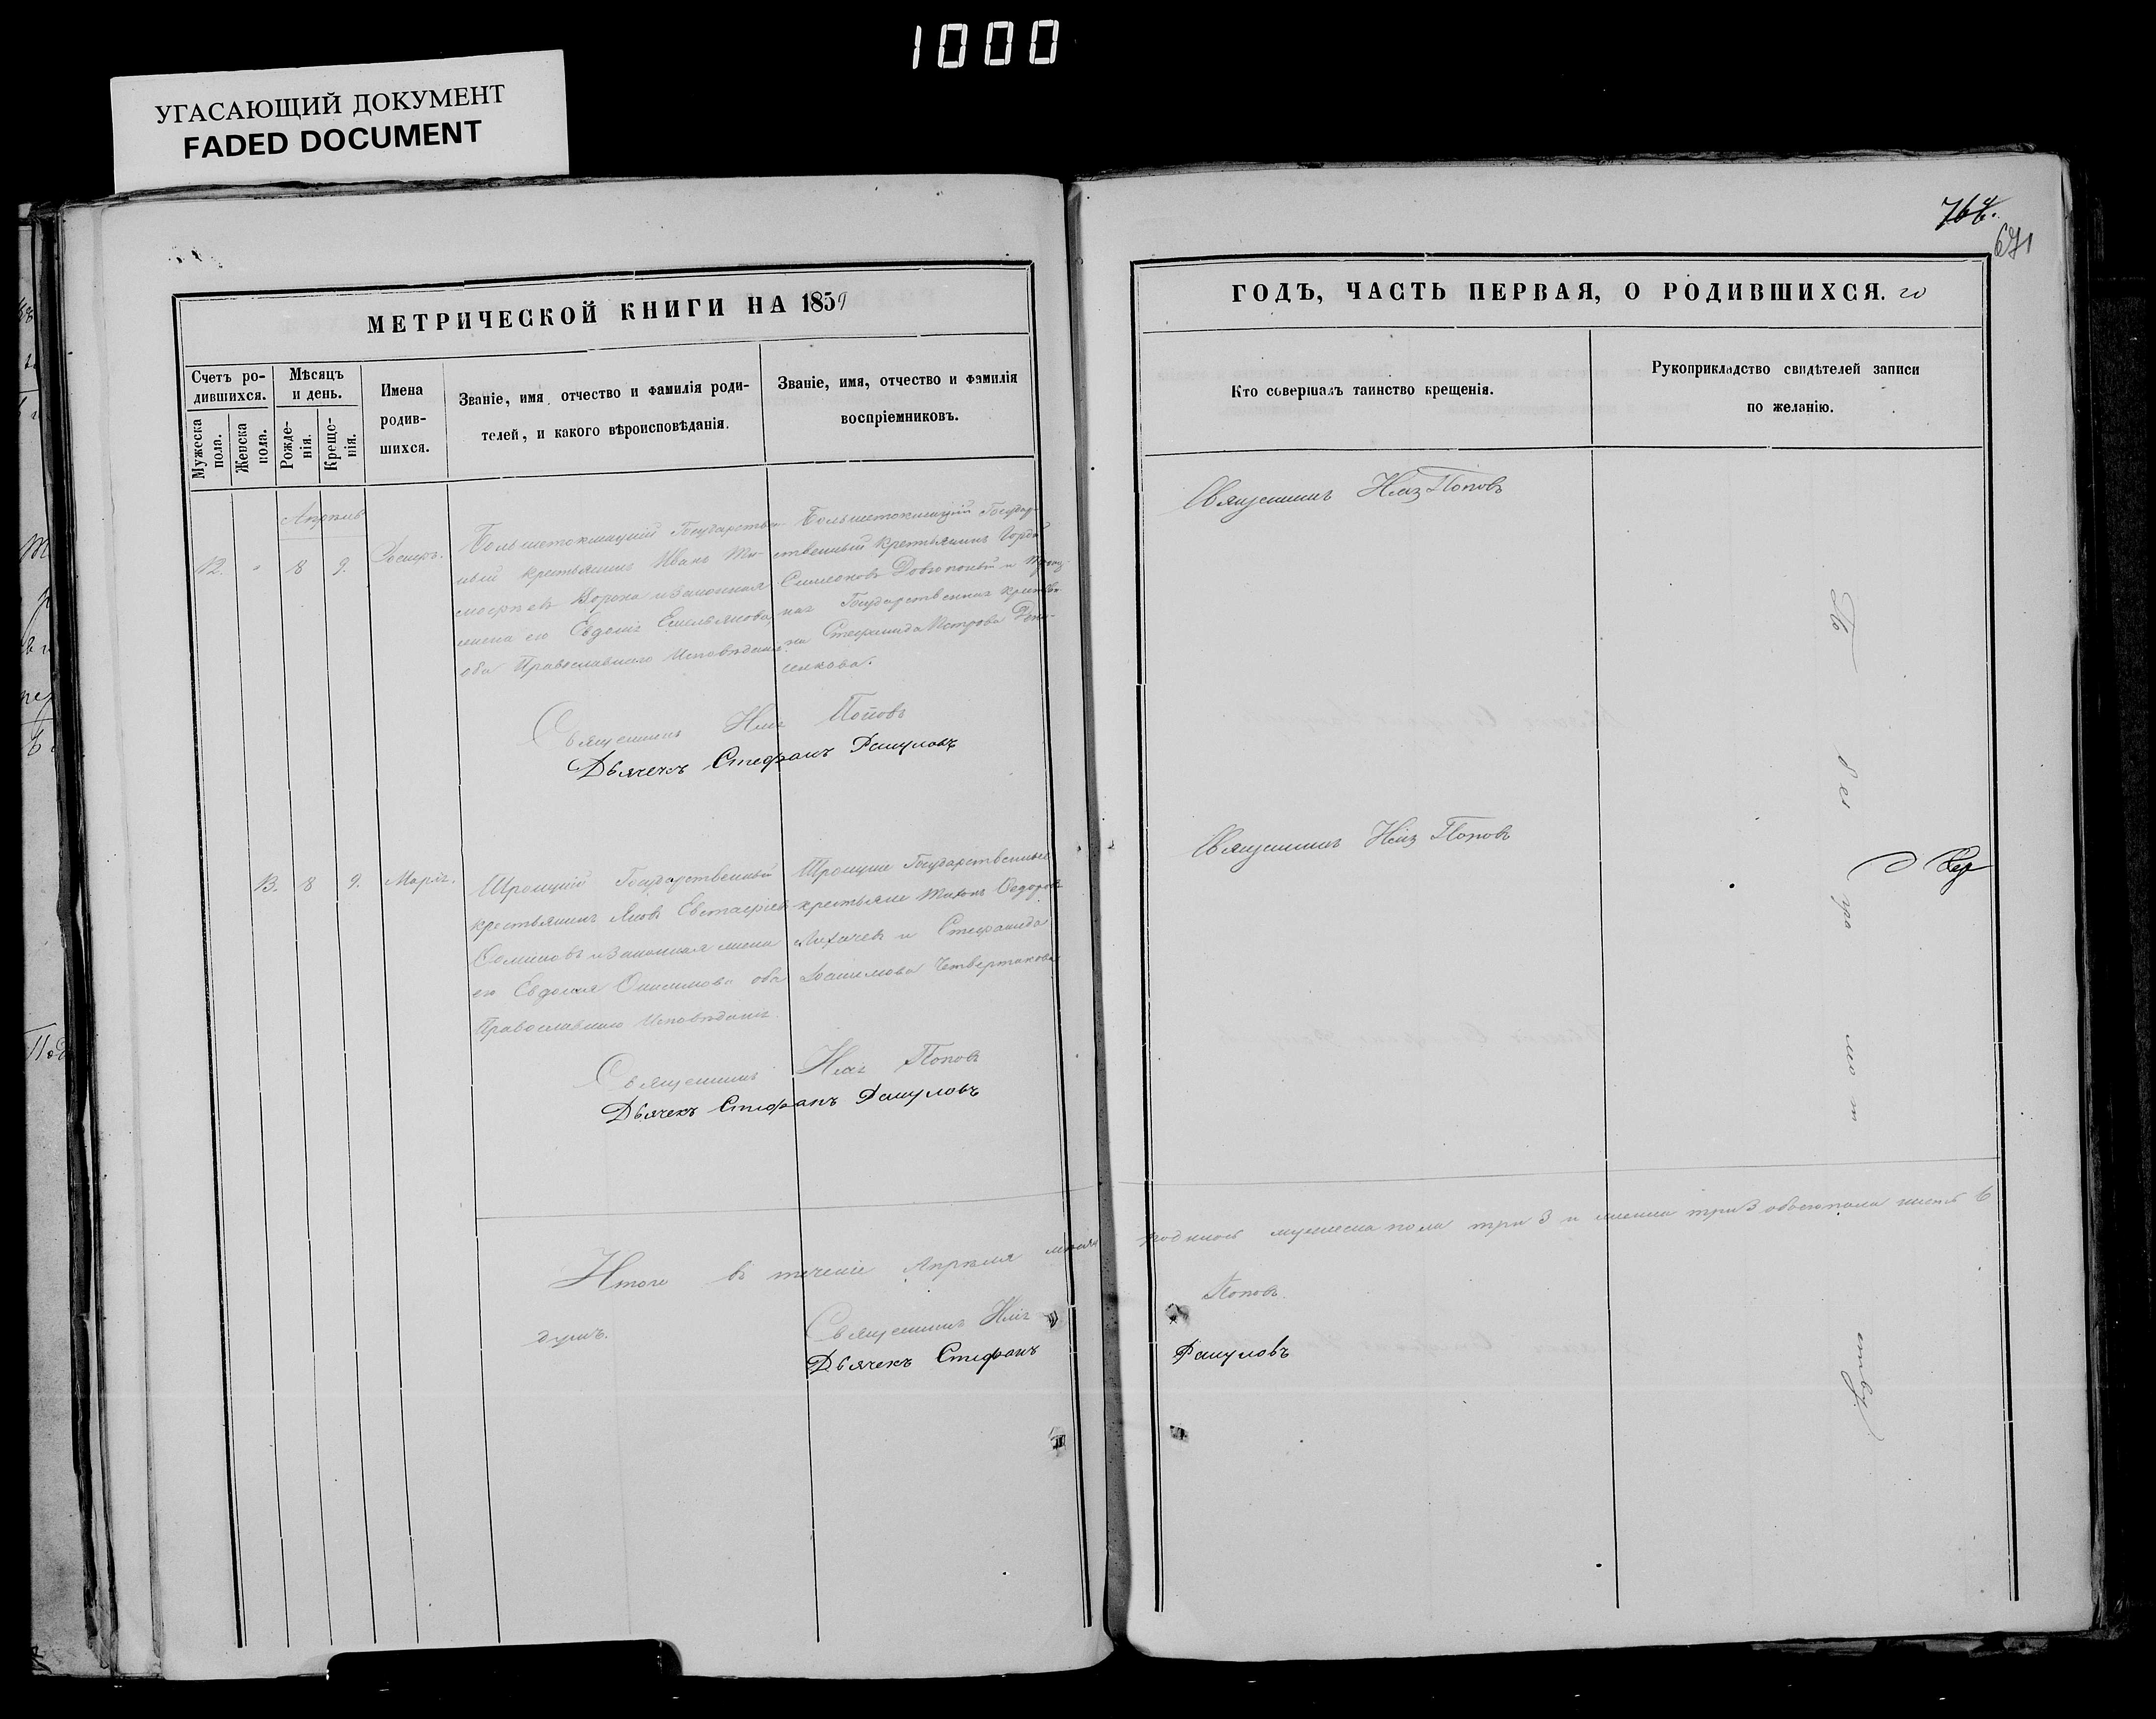 1000
УГАСАЮЩИЙ ДОКУМЕНТ
FADED DOCUMENT
МЕТРИЧЕСКОЙ КНИГИ НА 1859
Счетъ ро-
дившихся.
Мужеска
пола.
Женска
пола.
Мѣсяцъ
и день.
Рожде-
нія.
Креще-
нія.
Имена
родив-
шихся.
Званіе, имя, отчество и фамилія роди-
телей, и какого вѣроисповѣданія.
Званіе, имя, отчество и фамилія
воспріемниковъ.
Апрѣль
12. " 8 9.
Большетокмацкій Государствен-
ный крестьянинъ Иванъ Ти-
моѳеевъ Ворона и Законная
жена его Евдокія Емельянова,
оба Православнаго Исповѣданія.
Большетокмацкій Государ-
ственный крестьянинъ
Симеоновъ и
Государственная крестьян-
ка Стефанида Петрова
Священникъ Попов
Дьячекъ Стефанъ Рашуловъ
13. 8 9. Марія.
Государственный
крестьянинъ Яковъ Евстафіевъ
и Законная жена
его Евдокія Онисимова оба
Православнаго Исповѣданія.
Государственные
крестьяне Тихонъ Ѳедоровъ
Лихачевъ и Стефанида
Іоакимова Четвертакова
Священникъ Попов
Дьячекъ Стефанъ Рашуловъ
Итого въ теченіе Апрѣля мѣсяца
душъ.
Священникъ
Дьячекъ Стефанъ
764.
671
ГОДЪ, ЧАСТЬ ПЕРВАЯ, О РОДИВШИХСЯ.
Кто совершалъ таинство крещенія.
Рукоприкладство свидѣтелей записи
по желанію.
Священникъ Поповъ
Священникъ Поповъ
родилось мужеска пола три 3 и женска три 3 обоего пола шесть 6
Поповъ.
Рашуловъ